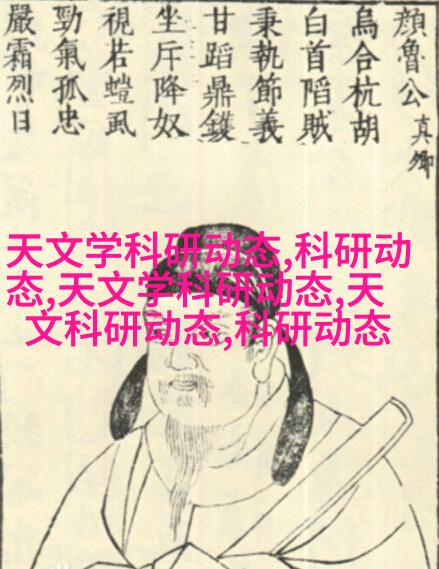 顔魯公真卿
烏合杭胡
白首陷賊
秉執節義
甘蹈鼎鑊
坐斥降奴
視若螘虱
勁氣孤忠
嚴霜烈日
天文学科研动态,科研动
态,天文学科研动态,天
文科研动态,科研动态